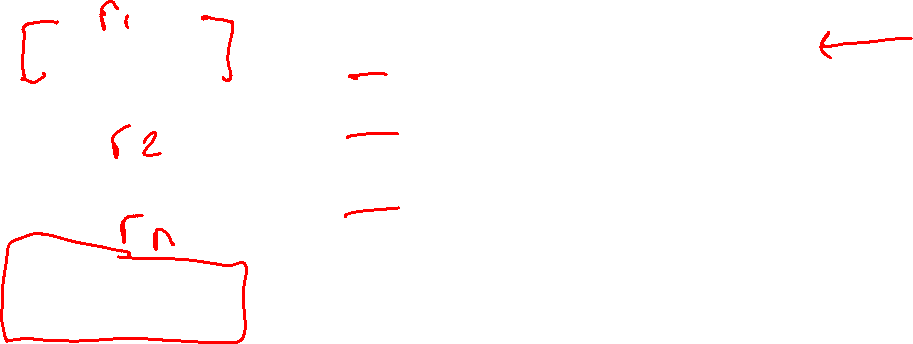 [ r1 ]
—
—
r2
—
rn